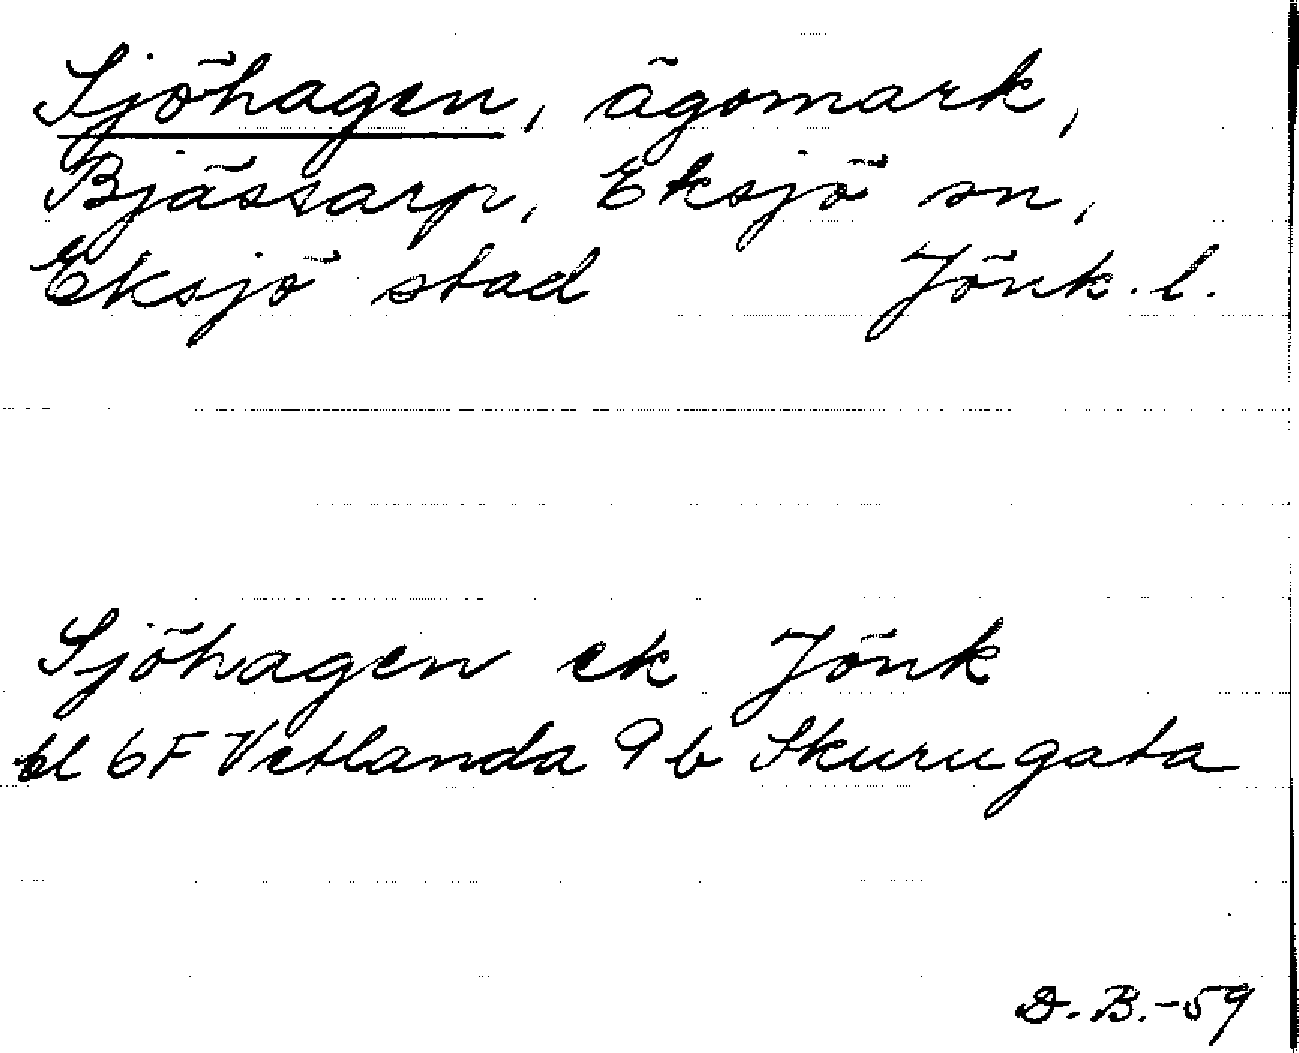 Sjöhagen, ägomark,
Bjässarp, Eksjö sn,
Eksjö stad Jönk. l.
Sjöhagen ek Jönk
bl 6F Vetlanda 9b Skurugata
D.B.-59